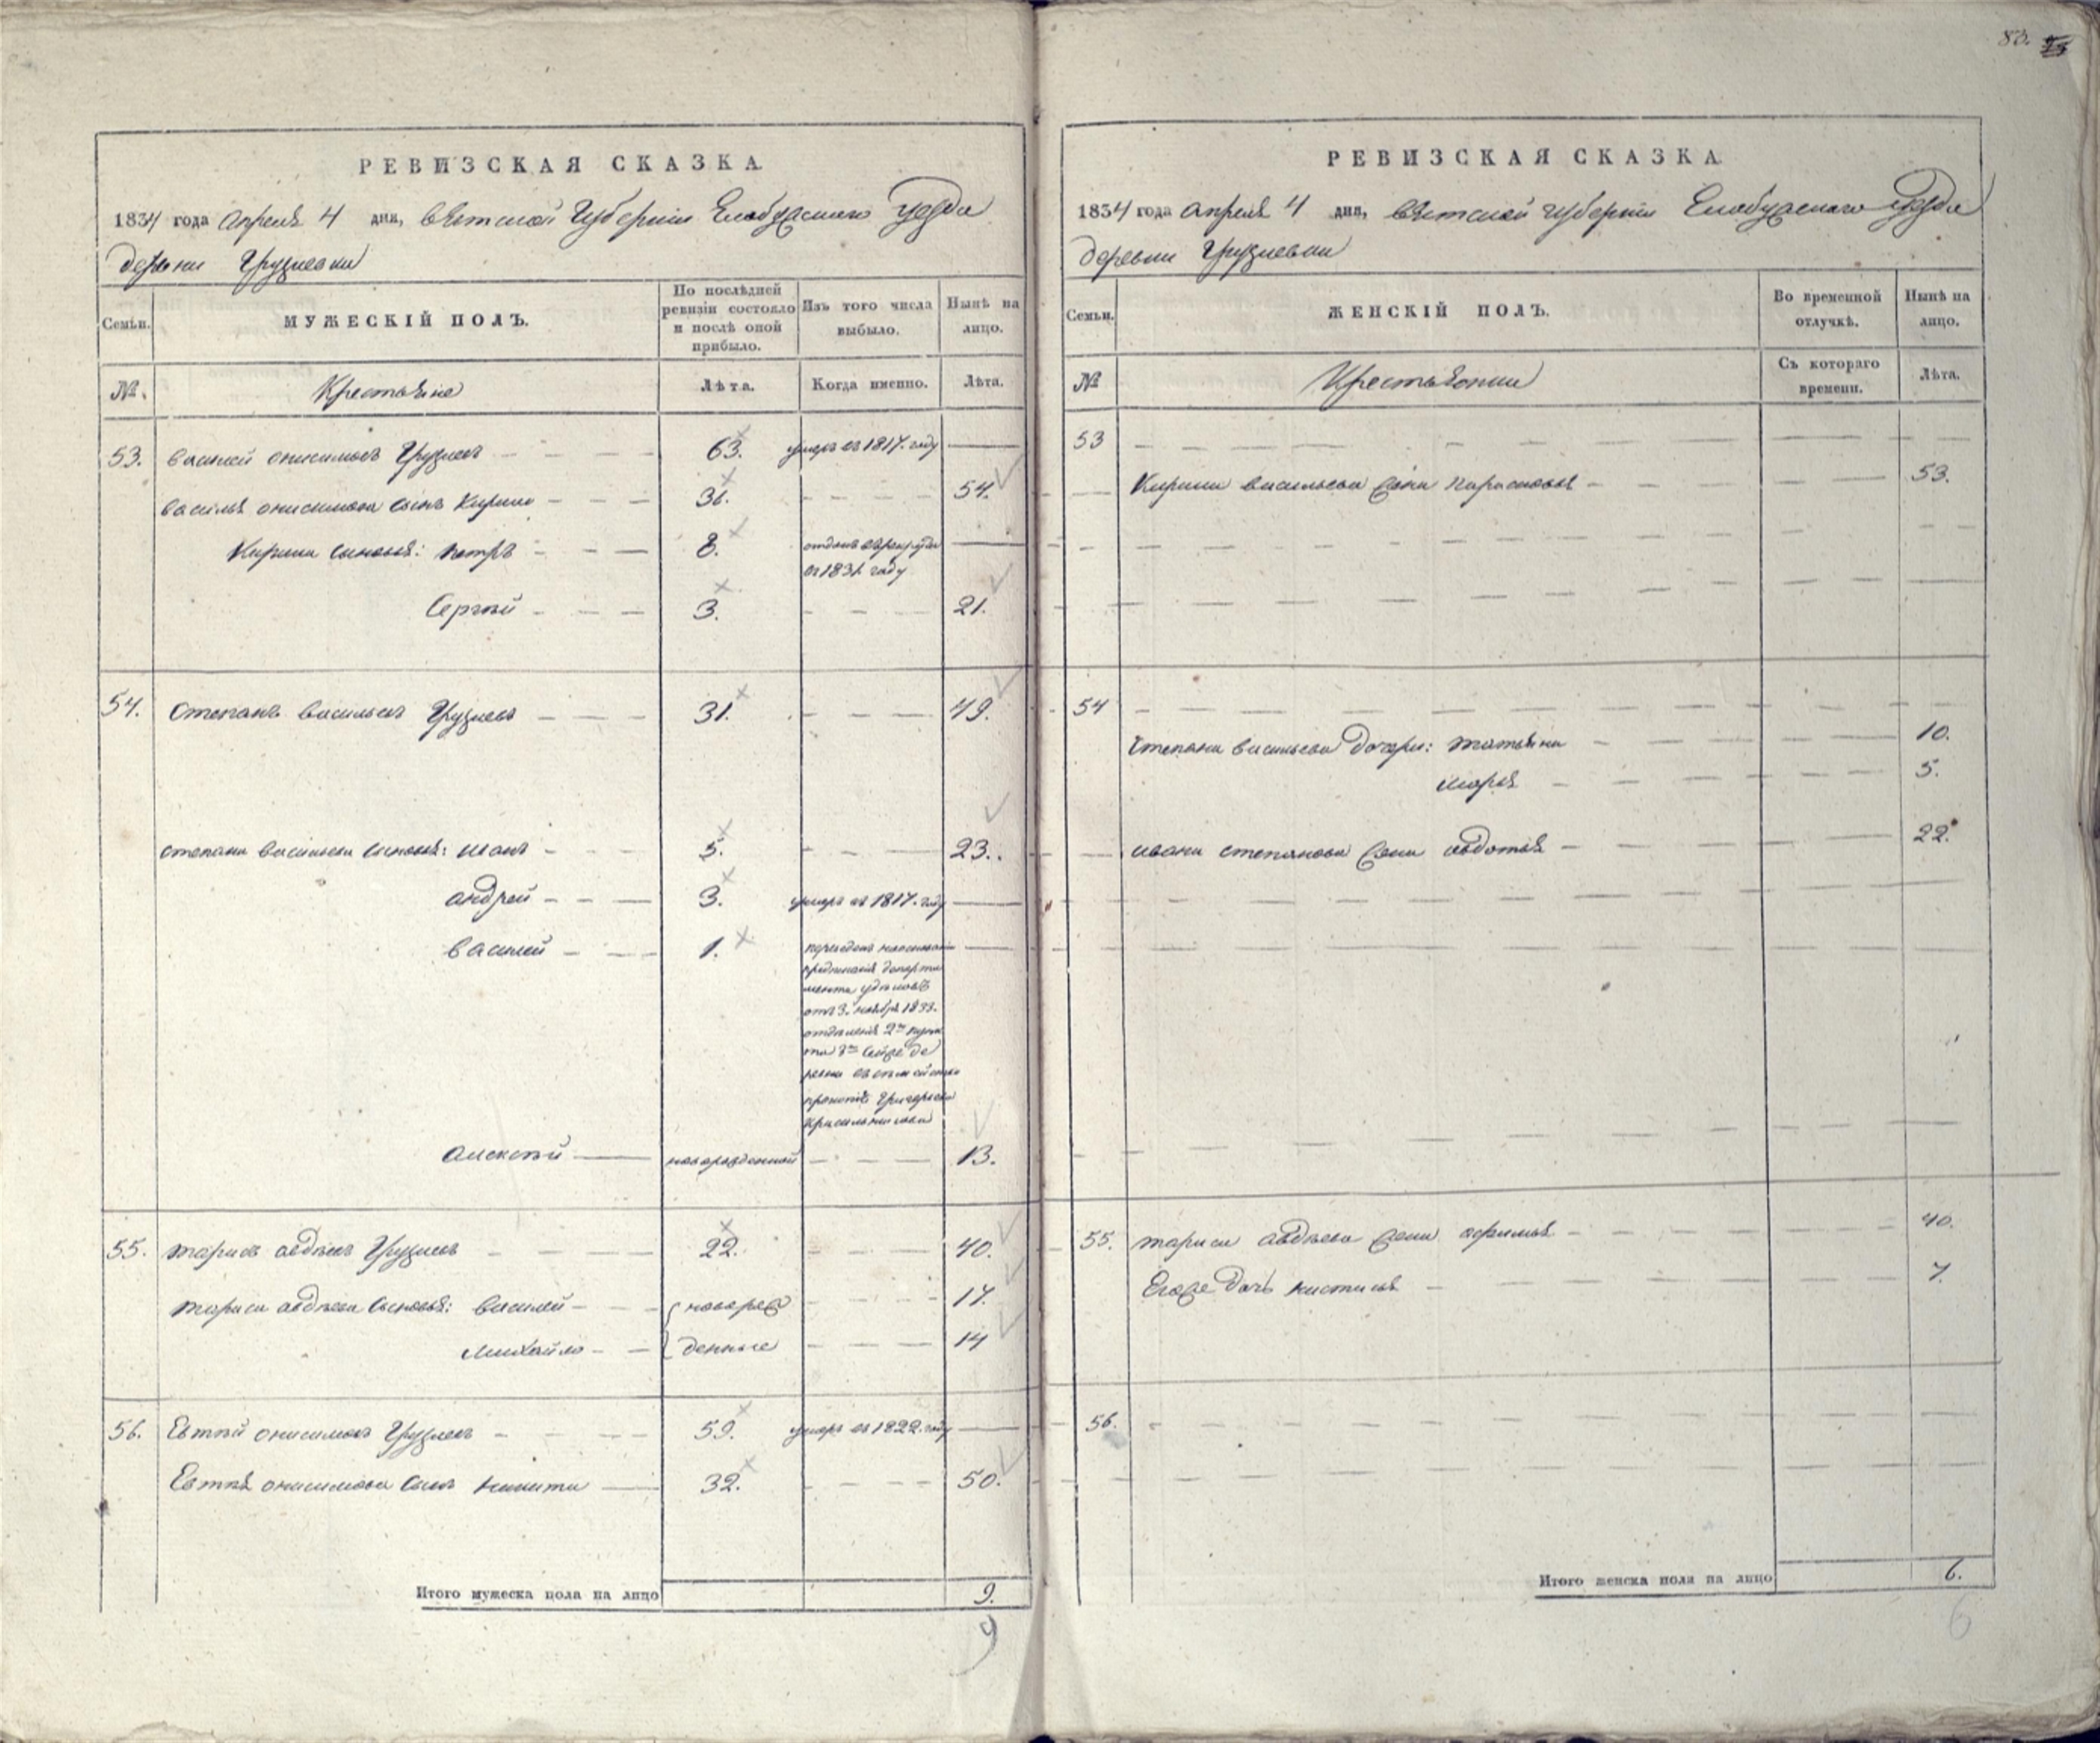 83.
РЕВИЗСКАЯ СКАЗКА
1834 года апреля 4 дня, вятской губернии Елабужского уезда
деревни Грузневки
Семьи.
МУЖЕСКІЙ ПОЛЪ.
По послѣдней ревизіи состояло и послѣ оной прибыло.
Изъ того числа выбыло.
Нынѣ на лицо.
№.
Крестьяне
Лѣта.
Когда именно.
Лѣта.
53. василей онисимовъ Грузневъ 63. умеръ въ 1817. году
василья онисимова сынъ Кирило 36. 54.
Кирила сыновья: петръ 8. отданъ въ рекруты
въ 1831 году
Сергѣй 3. 21.
54. Степанъ васильевъ Грузневъ 31. 49.
степана васильева сыновья: иванъ 5. 23.
андрей 3. умеръ въ 1817. году
василей 1.
предписанія департа
мента удѣловъ
отъ 3. ноября 1833.
отдѣленія 2го
де
ревни
Григорьева
Красильникова
алексѣй новорожденной 13.
55. тарасъ авдѣевъ Грузневъ 22. 40.
тараса авдѣева сыновья: василей новорож 17.
михайло денные 14
56. Евтѣй онисимовъ Грузневъ 59. умеръ въ 1822. году
Евтѣя онисимова сынъ никита 32. 50.
Итого мужеска пола на лицо 9.
9
РЕВИЗСКАЯ СКАЗКА
1834 года апреля 4 дня, вятской губернии Елабужского уезда
деревни Грузневки
Семьи.
ЖЕНСКІЙ ПОЛЪ.
Во временной отлучкѣ.
Нынѣ на лицо.
№
Крестьянки
Съ котораго времени.
Лѣта.
53
Кирила васильева жена парасковья 53.
54
Степана васильева дочери: татьяна 10.
марья 5.
ивана степанова жена авдотья 22.
55. тараса авдѣева жена афимья 40.
Егоже дочь настасья 7.
56.
Итого женска пола на лицо 6.
6